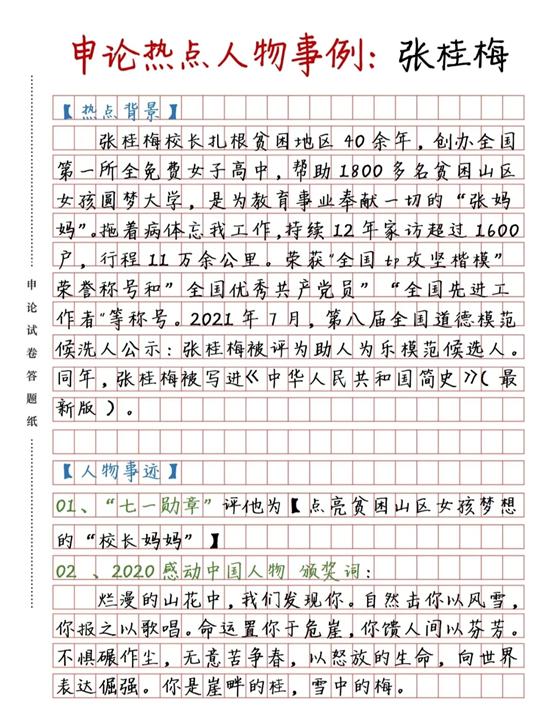 申论热点人物事例：张桂梅
【热点背景】
张桂梅校长扎根贫困地区40余年，创办全国
第一所全免费女子高中，帮助1800多名贫困山区
女孩圆梦大学，是为教育事业奉献一切的“张妈
妈”。拖着病体忘我工作，持续12年家访超过1600
户，行程11万余公里。荣获“全国tp攻坚楷模”
荣誉称号和”全国优秀共产党员”“全国先进工
作者”等称号。2021年7月，第八届全国道德模范
候选人公示：张桂梅被评为助人为乐模范候选人。
同年，张桂梅被写进《中华人民共和国简史》（最
新版）。
【人物事迹】
01、“七一勋章”评他为【点亮贫困山区女孩梦想
的“校长妈妈”】
02、2020感动中国人物 颁奖词：
烂漫的山花中，我们发现你。自然击你以风雪，
你报之以歌唱。命运置你于危崖，你馈人间以芬芳。
不惧碾作尘，无意苦争春，以怒放的生命，向世界
表达倔强。你是崖畔的桂，雪中的梅。
申论试卷答题纸